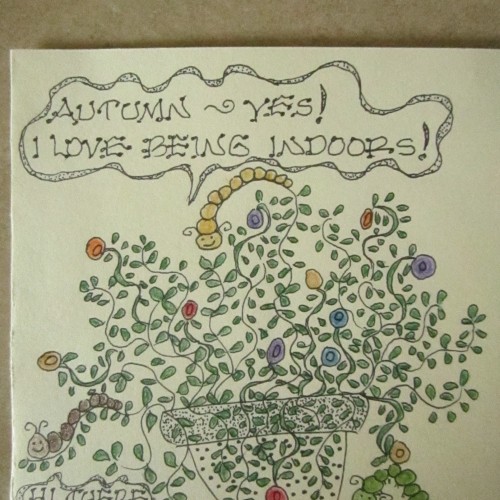 AUTUMN ~ YES!
I LOVE BEING INDOORS!
HI THERE